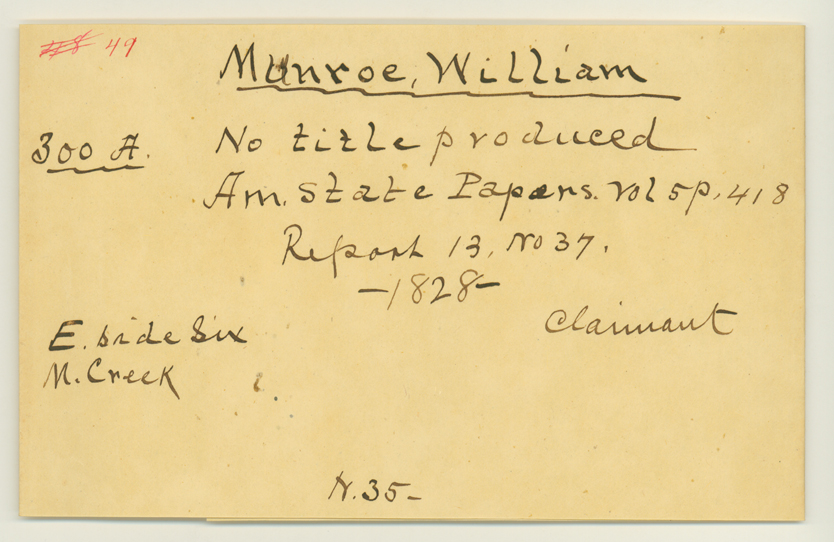 49
Munroe, William
300 A. No title produced
Am. State Papers. Vol 5 p. 418
Report 13, No 37.
—1828—
Claimant
E. side Six
M. Creek
N. 35—